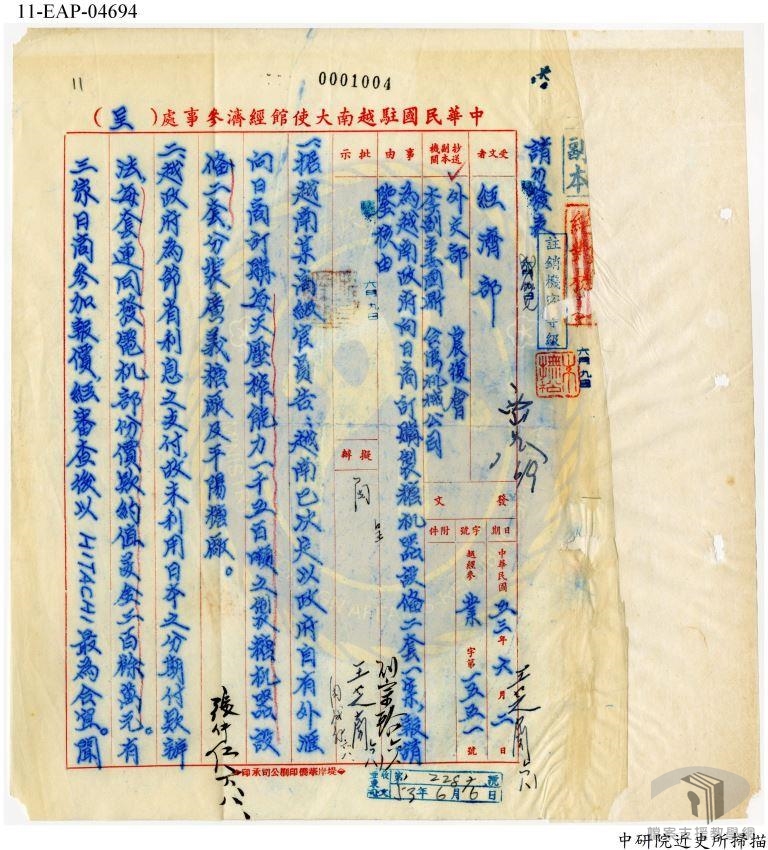 11-EAP-04694
11
0001004
中華民國駐越南大使館經濟參事處（呈）
副本
註銷機密等級
六月九日
受文者
經濟部
抄送副本機關
外交部 農復會
本副主委圖斯 台灣机械公司
事由
為越南政府向日商訂購製糖机器設備二套一案報請
鑒核由
批示
擬辦
六月九日
發文
日期
字號
附件
中華民國五三年六月二日
越經參業字第一五五一號
一、据越南某高級官員告：越南已決定以政府自有外滙
向日商訂購每天壓榨能力一千五百噸之製糖机器設
備二套，分裝廣義糖廠及平陽糖廠。
二、越政府為節省利息之支付，故未利用日本之分期付款辦
法，每套連同發電机部份價款約值美金二百餘萬元。有
三家日商參加報價，經審查後以HITACHI最為合宜。聞
王芝
張仲仁
堤岸華僑印刷公司承印
53年6月6日
檔案支援教學網
中研院近史所掃描